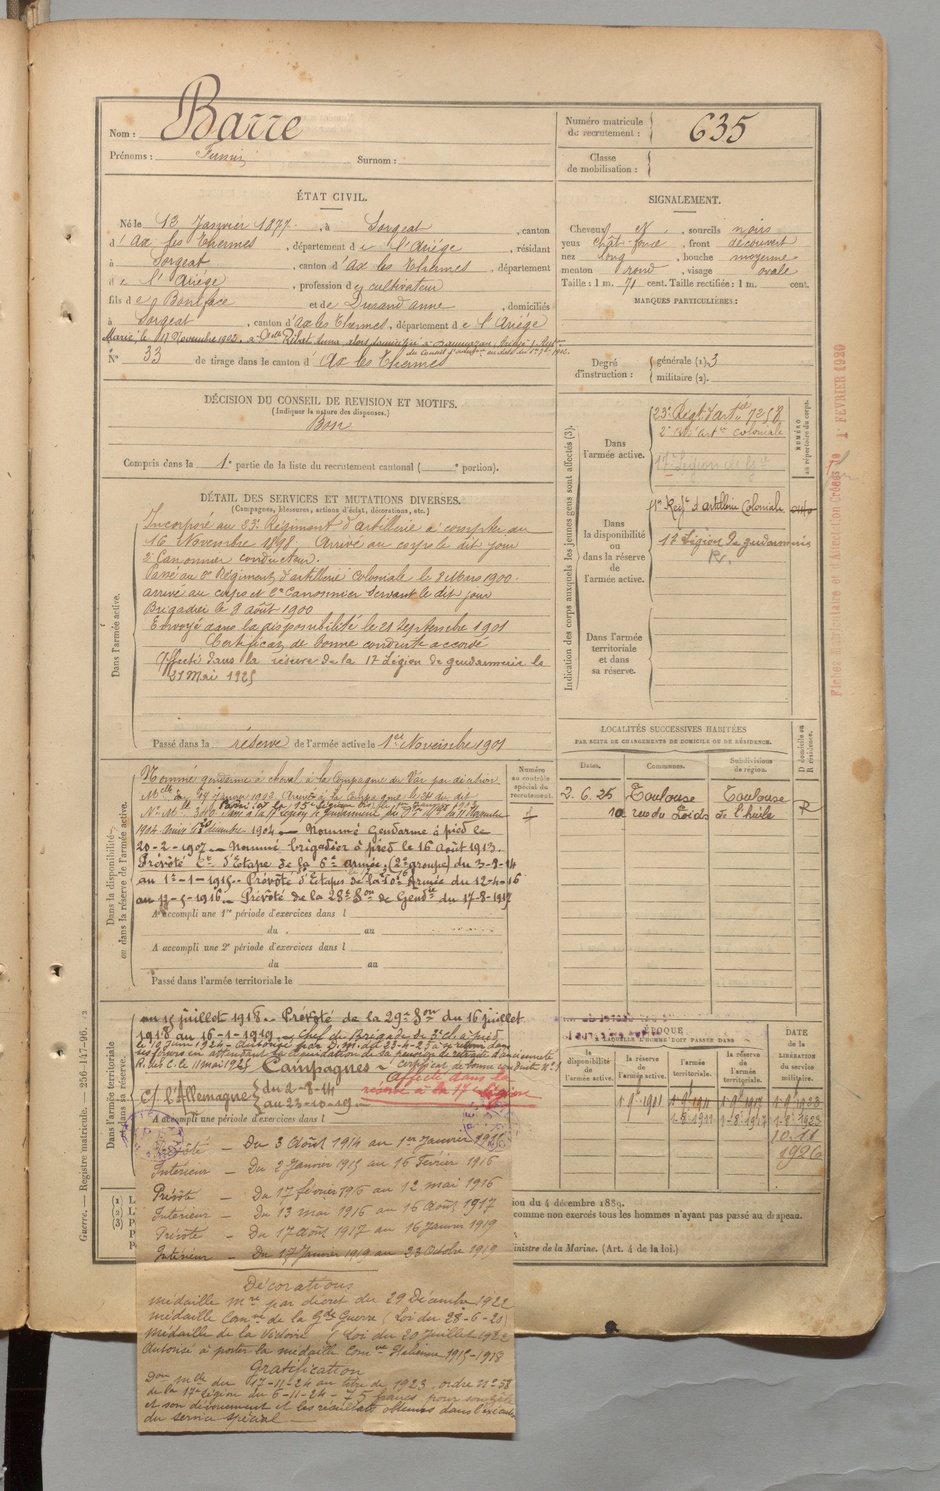 Nom : Barre
Prénoms : Firmin
Surnom :
Numéro matricule du recrutement : 635
Classe de mobilisation :
ÉTAT CIVIL.
Né le 13 Janvier 1877, à Sorgeat, canton
d'Ax les Thermes, département de l'Ariège, résidant
à Sorgeat, canton d'Ax les Thermes, département
de l'Ariège, profession de cultivateur
fils de Boniface et de Durand Anne, domiciliés
à Sorgeat, canton d'Ax les Thermes, département de l'Ariège
Marié, le 17 Novembre 1902, à
N° 33 de tirage dans le canton d'Ax les Thermes
SIGNALEMENT.
Cheveux et sourcils noirs
yeux chât. foncé, front découvert
nez long, bouche moyenne
menton rond, visage ovale
Taille : 1 m. 71 cent. Taille rectifiée : 1 m. cent.
MARQUES PARTICULIÈRES :
Degré d'instruction : générale (1). 3
militaire (2).
DÉCISION DU CONSEIL DE REVISION ET MOTIFS.
(Indiquer la nature des dispenses.)
Bon
Compris dans la 1e partie de la liste du recrutement cantonal ( e portion).
DÉTAIL DES SERVICES ET MUTATIONS DIVERSES.
(Campagnes, blessures, actions d'éclat, décorations, etc.)
Dans l'armée active.
Incorporé au 23e Régiment d'artillerie à compter du
16 Novembre 1898. Arrivé au corps le dit jour
2e Canonnier conducteur.
Passé au Régiment d'artillerie Coloniale le 2 Mars 1900.
arrivé au corps et 2e Canonnier Servant le dit jour
Brigadier le 9 août 1900
Envoyé dans la disponibilité le 21 Septembre 1901
Certificat de bonne conduite accordé
Affecté dans la réserve de la 17e Légion de gendarmerie le
21 Mai 1925
Passé dans la réserve de l'armée active le 1er Novembre 1901
Indication des corps auxquels les jeunes gens sont affectés (3).
NUMÉRO au répertoire du corps.
Dans l'armée active.
23e Régt d'artie 7258
artie coloniale
17e Légion de Gie
Dans la disponibilité ou dans la réserve de l'armée active.
Régt d'artillerie Coloniale
17 Légion de gendarmerie
Dans l'armée territoriale et dans sa réserve.
Fiches 1er FEVRIER 1920
LOCALITÉS SUCCESSIVES HABITÉES
PAR SUITE DE CHANGEMENTS DE DOMICILE OU DE RÉSIDENCE.
Dates. Communes. Subdivisions de région. D domicile ou R résidence.
2.6.25 Toulouse Toulouse R
10 rue du Poids de l'huile
Dans la disponibilité ou dans la réserve de l'armée active.
Numéro au contrôle spécial du recrutement.
Nommé gendarme à cheval à la Compagnie du Var par décision
1904 1904. — Nommé Gendarme à pied le
20-2-1907 — Nommé brigadier à pied le 16 Août 1913.
Prévôté d'Étape de la 6e armée (2e groupe) du 3-8-14
au 1-1-1915 — Prévôté d'Étapes de la 10e Armée du 12-4-16
au 12-5-1916 — Prévôté de la 28e Don de Gendie du 17-8-1917
A accompli une 1re période d'exercices dans l
du au
A accompli une 2e période d'exercices dans l
du au
Passé dans l'armée territoriale le
Dans l'armée territoriale et dans sa réserve.
au 15 juillet 1918 — Prévôté de la 29e Don du 16 juillet
1918 au 16-1-1919 — Chef de Brigade de 3e cl. à pied
le 12 Juin 1924 — Autorisé par D.M. du 23-4-25 à se retirer dans
ses foyers en attendant la liquidation de sa pension de retraite d'ancienneté
R. des C. le 11 mai 1925
Campagnes
Affecté dans la
réserve à la 17e Légion
c/ l'Allemagne du 2-8-14
au 23-10-19
A accompli une période d'exercices dans l
ÉPOQUE
À LAQUELLE L'HOMME DOIT PASSER DANS
la disponibilité de l'armée active.
la réserve de l'armée active.
l'armée territoriale.
la réserve de l'armée territoriale.
DATE DE LA LIBÉRATION DU SERVICE militaire.
1 9bre 1901 1 9bre 1911 1 9bre 1917 1 9bre 1923
1-8-1911 1-8-1917 1-8-1923
10.11
1926
Prévôté — Du 3 Août 1914 au 1er Janvier 1915
Intérieur — Du 2 Janvier 1915 au 16 Février 1916
Prévôté — Du 17 février 1916 au 12 mai 1916
Intérieur — Du 13 mai 1916 au 16 Août 1917
Prévôté — Du 17 Août 1917 au 16 Janvier 1919
Intérieur — Du 17 Janvier 1919 au 23 Octobre 1919
Décorations
médaille mre par décret du 29 Décembre 1922
médaille Comve de la Gde Guerre (Loi du 28-6-20)
médaille de la Victoire (Loi du 20 Juillet 1922
Autorisé à porter la médaille Comve Italienne 1915-1918
Gratification
Don du 17-11-24 au titre de 1923 ordre n° 58
de la 17e légion du 6-11-24 — 75 francs pour
et son dévouement et les résultats obtenus dans
du service spécial —
ion du 4 décembre 1889.
comme non exercés tous les hommes n'ayant pas passé au drapeau.
inistre de la Marine. (Art. 4 de la loi.)
Guerre. — Registre matricule. — 256-147-96.